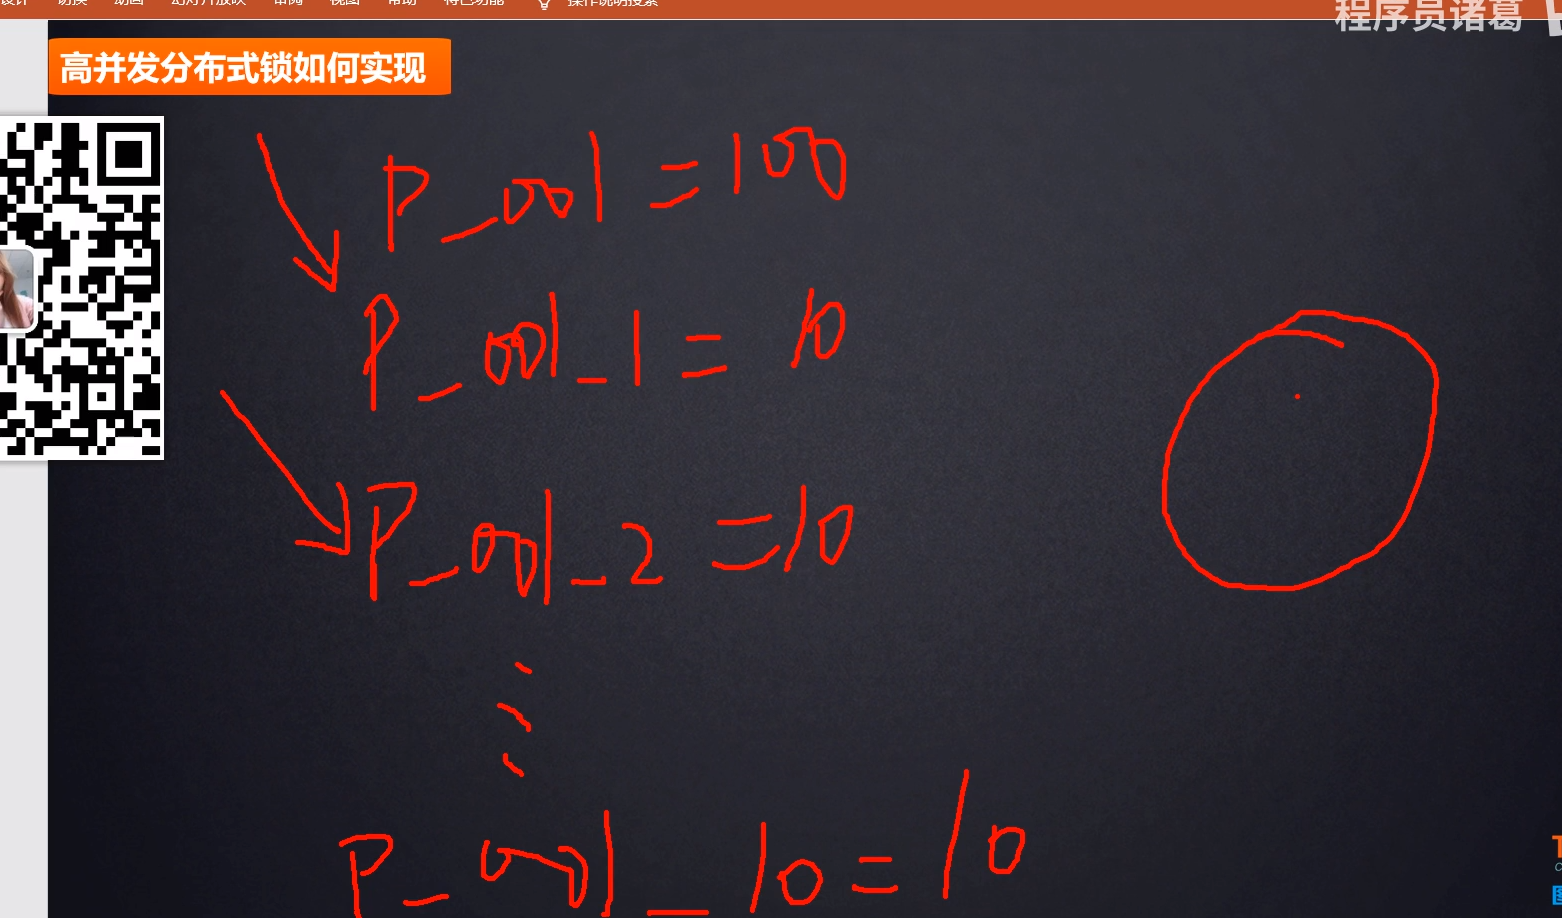 设计 切换 动画 幻灯片放映 审阅 视图 帮助 特色功能 操作说明搜索
程序员诸葛
高并发分布式锁如何实现
P_001=100
P_001_1=10
P_001_2=10
P_001_10=10